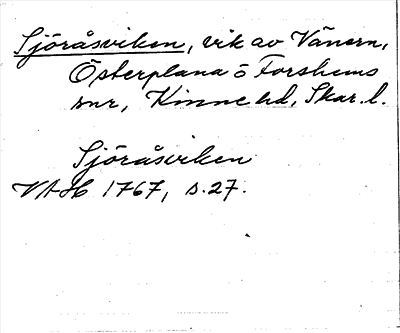 Sjöråsviken, vik av Vänern,
Österplana o Forshems
snr, Kinne hd, Skar. l.
Sjöråsviken
VAH 1767, s. 27.